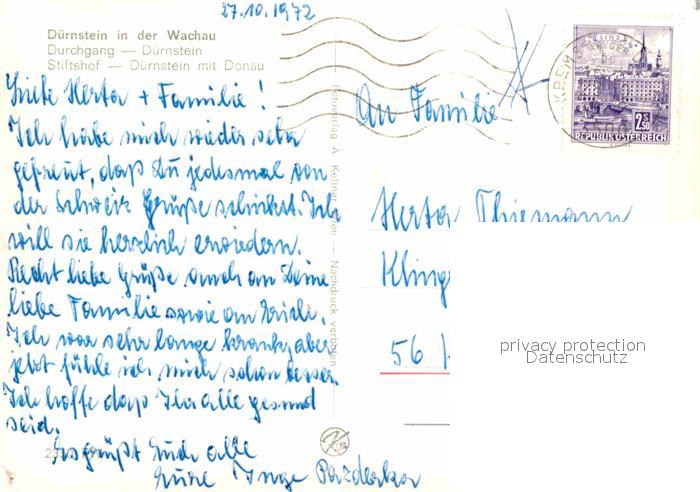 27.10.1972
Dürnstein in der Wachau
Durchgang — Dürnstein
Stiftshof — Dürnstein mit Donau
Liebe Herta + Familie!
Ich habe mich wieder sehr
gefreut, daß Du jedesmal von
der Schweiz Grüße schickst. Ich
will sie herzlich erwiedern.
Recht liebe Grüße auch an Deine
liebe Familie sowie an Erich.
Ich war sehr lange krank, aber
jetzt fühle ich mich schon besser.
Ich hoffe daß Ihr alle gesund
seid.
Es grüßt Euch alle
Eure Inge Pazderka
Nachdruck verboten
An Familie
Herta Thiemann
Kling
56
2S50
REPUBLIK ÖSTERREICH
privacy protection
Datenschutz